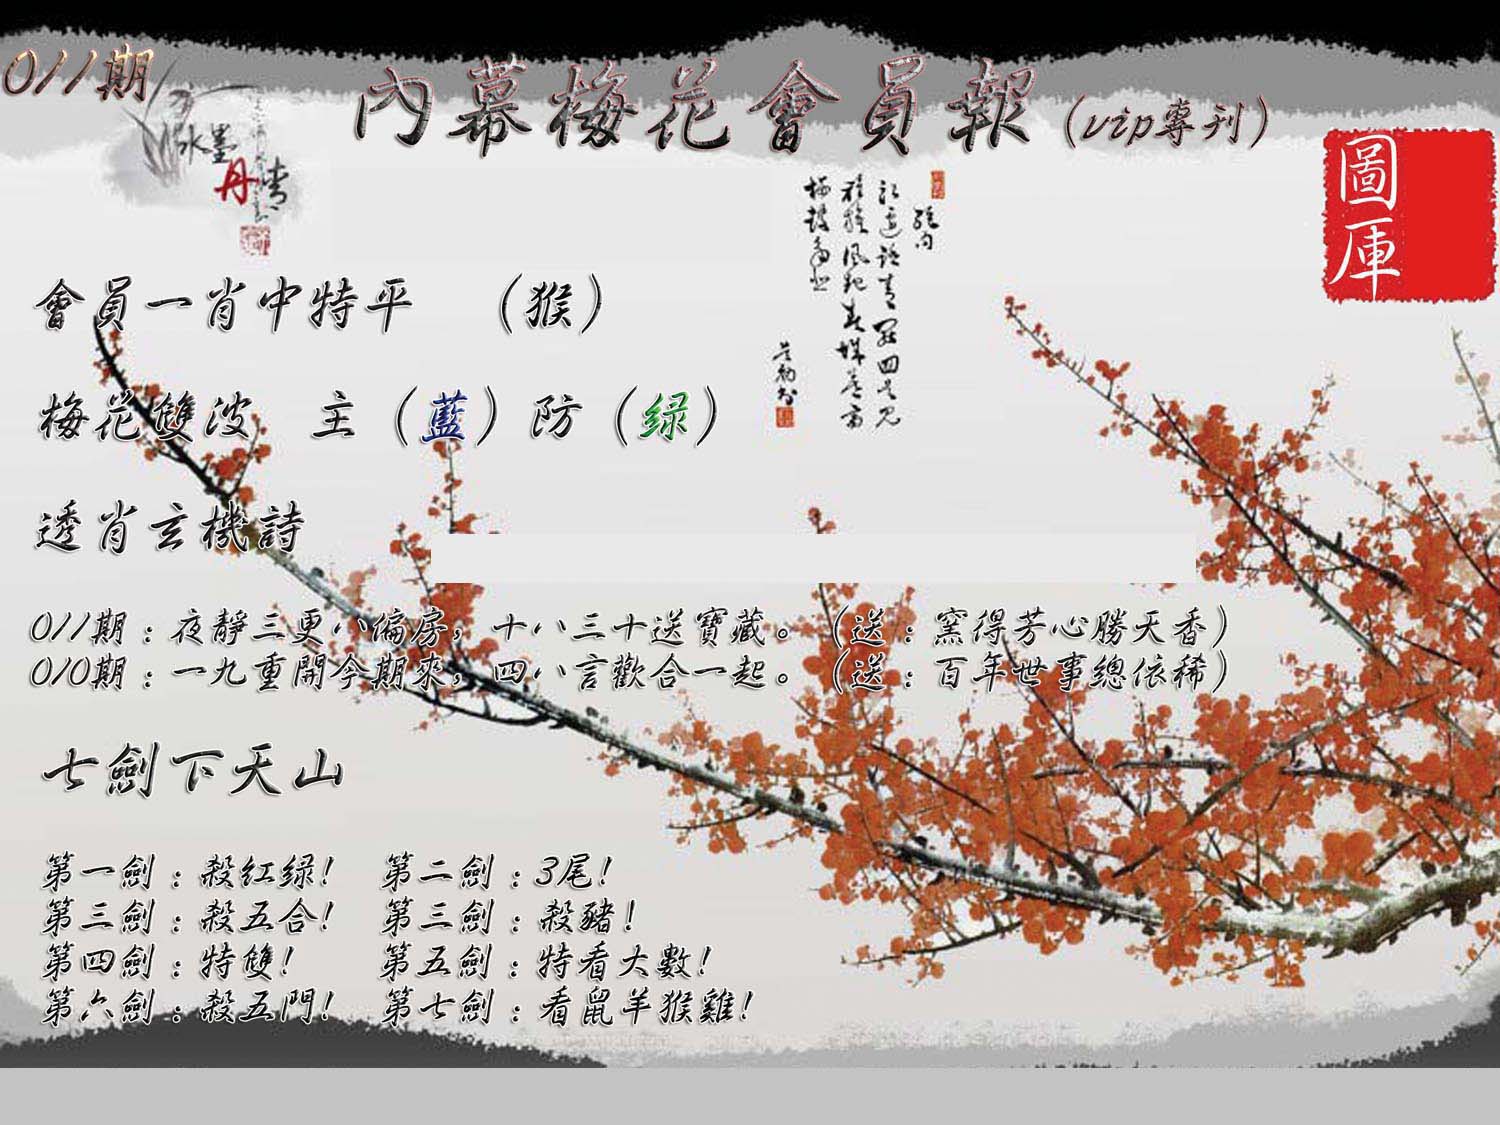 011期
內幕梅花會員報（vip專刊）
水墨
丹青
圖庫
會員一肖中特平　（猴）
梅花雙波　主（藍）防（绿）
透肖玄機詩
011期：夜靜三更八偏房，十八三十送寶藏。（送：窯得芳心勝天香）
010期：一九重開今期來，四八言歡合一起。（送：百年世事總依稀）
七劍下天山
第一劍：殺红绿!　第二劍：3尾!
第三劍：殺五合!　第三劍：殺豬!
第四劍：特雙!　第五劍：特看大數!
第六劍：殺五門!　第七劍：看鼠羊猴雞!